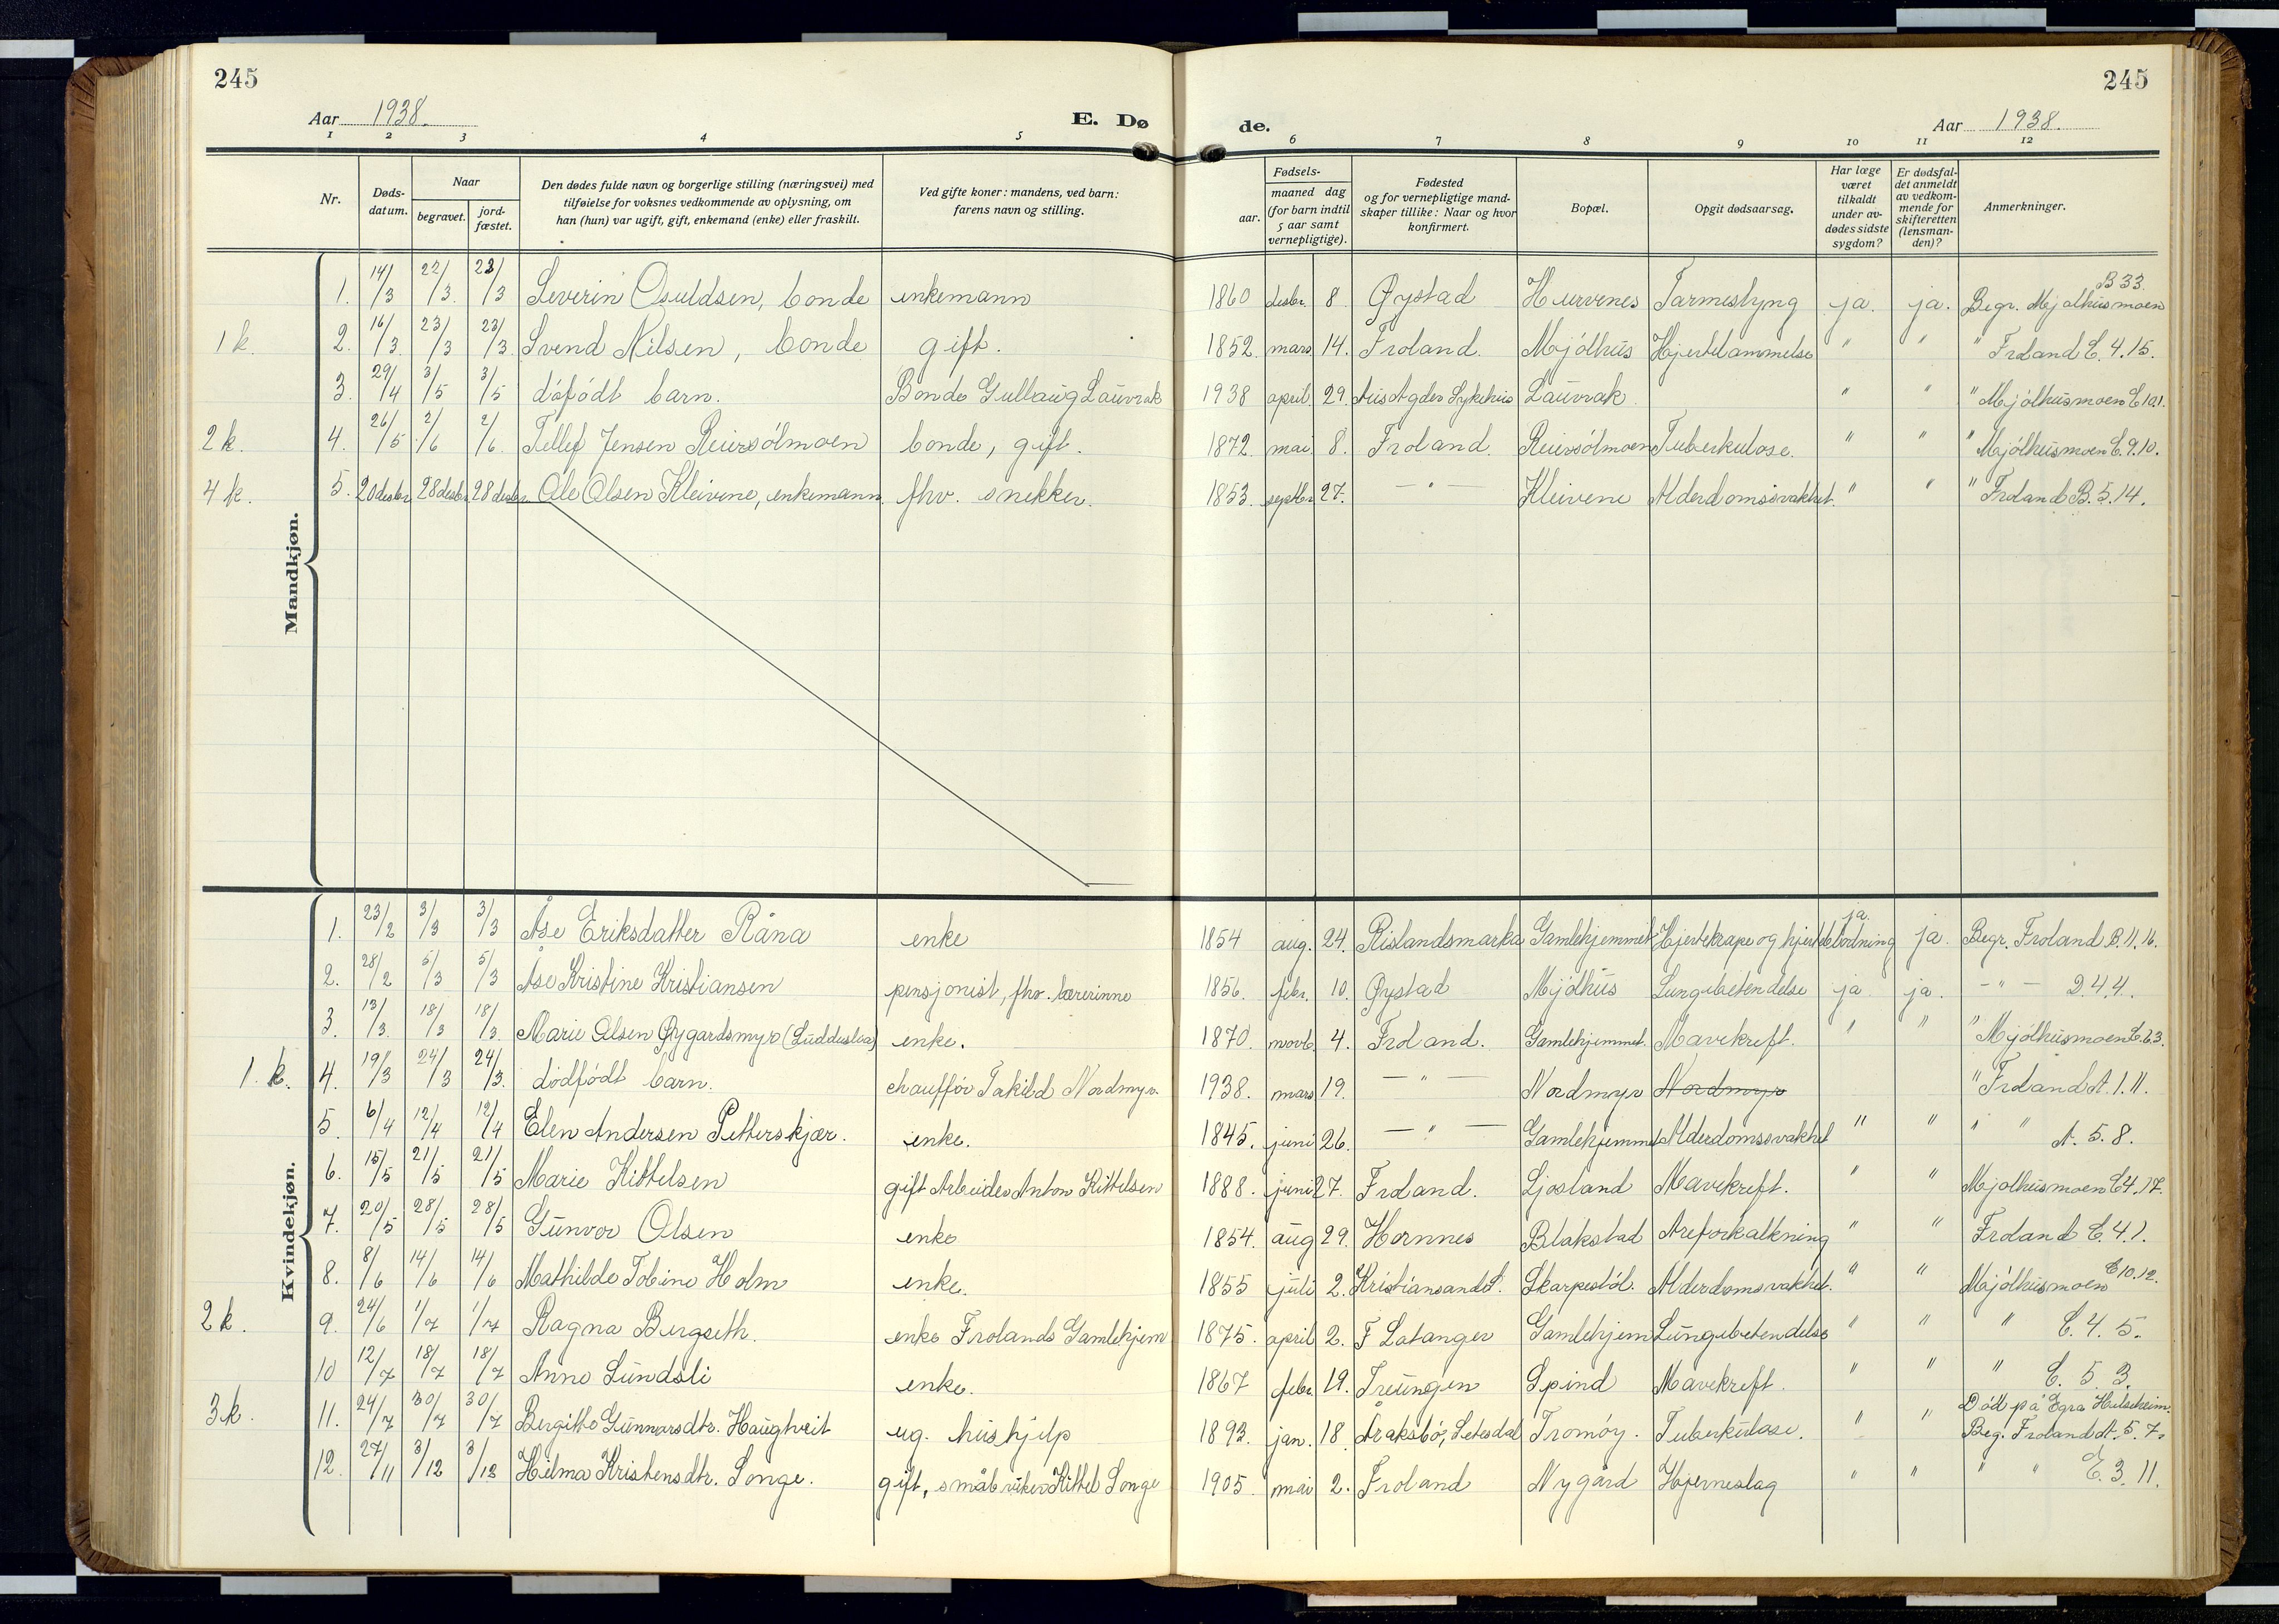 245
245
Aar 1938.
E. Døde.
Aar 1938.
1 2 3 4 5 6 7 8 9 10 11 12
Nr.
Døds-datum.
Naar
begravet.
jord-fæstet.
Den dødes fulde navn og borgerlige stilling (næringsvei) med
tilføielse for voksnes vedkommende av oplysning, om
han (hun) var ugift, gift, enkemand (enke) eller fraskilt.
Ved gifte koner: mandens, ved barn:
farens navn og stilling.
Fødsels-
aar.
maaned dag
(for barn indtil
5 aar samt
vernepligtige).
Fødested
og for vernepligtige mand-
skaper tillike: Naar og hvor
konfirmert.
Bopæl.
Opgit dødsaarsag.
Har læge
været
tilkaldt
under av-
dødes sidste
sygdom?
Er dødsfal-
det anmeldt
av vedkom-
mende for
skifteretten
(lensman-
den)?
Anmerkninger.
Mandkjøn.
1. 14/3 22/3. 23/3 Severin Osuldsen, bonde enkemann 1860 desbr. 8. Øystad Hurvenes Tarmeslyng ja. ja. Begr. Mjølhusmoen B 33.
1 k. 2. 16/3 23/3 23/3. Svend Nilsen, bonde gift. 1852. mars 14. Froland. Mjølhus Hjertelammelse " " " Froland C. 4. 15.
3. 29/4 3/5 3/5 døfødt barn. Bonde Gullaug Lauvrak 1938 april 29. Aust Agder Sykehus Lauvrak " " " Mjølhusmoen C 10.1.
2 k. 4. 26/5 2/6 2/6. Tellef Jensen Reiersølmoen bonde, gift. 1872. mai 8. Froland. Reiersølmoen Tuberkulose. " " " Mjølhusmoen C. 9. 10.
4 k. 5. 20 desbr. 28 desbr. 28 desbr. Ole Olsen Kleivene, enkemann. fhv. snekker. 1853. septbr 27. — " — Kleivene Alderdomssvakhet. " " " Froland B. 5. 14.
Kvindekjøn.
1. 23/2 3/3 3/3 Åse Eriksdatter Råna enke 1854 aug. 24. Rislandsmarka Gamlehjemmet Hjertekrampe og hjerteblødning ja. ja. Begr. Froland B. 11. 16.
2. 28/2 5/3 5/3 Åse Kristine Kristiansen pensjonist, fhv. lærerinne 1856. febr. 10. Øystad Mjølhus Lungebetendelse ja. ja. — " — D. 4. 4.
3. 13/3. 18/3 18/3. Marie Olsen Øygardsmyr (Ludduslia) enke. 1870. novb. 4. Froland. Gamlehjemmet. Mavekreft. " " " Mjølhusmoen C. 6. 3.
1. k. 4. 19/3 24/3 24/3. dødfødt barn. chauffør Takild Nordmyr. 1938. mars 19. — " — Nordmyr Nordmyr " Froland A. 1. 11.
5. 6/4 12/4 12/4 Elen Andersen Petterskjær. enke. 1845. juni 26. — " — Gamlehjemmet Alderdomssvakhet " " " " A. 5. 8.
6. 15/5 21/5 21/5 Marie Kittelsen gift Arbeider Anton Kittelsen 1888. juni 27. Froland. Ljosland Mavekreft. " " Mjølhusmoen C 4. 17.
7. 20/5 28/5 28/5 Gunvor Olsen enke 1854. aug 29. Hornnes Blakstad Areforkalkning " " Froland C. 4. 1.
8. 8/6 14/6 14/6 Mathilde Tobine Holm enke. 1855 juli 2. Kristiansand S. Skarpesbøl. Alderdomsvakhet. " " Mjølhusmoen C 10. 12.
2 k. 9. 24/6 1/7 1/7 Ragna Bergseth. enke Frolands Gamlehjem 1875. april 2. F Latanger Gamlehjem Lungebetendelse " " " C. 4. 5.
10 12/7 18/7 18/7 Anne Lundsli enke. 1867 febr. 19. Treungen Spind Mavekreft. " " " C. 5. 3.
3 k. 11. 24/7 30/7 30/7 Bergitte Gunnarsdtr. Haugtveit ug. hushjelp 1893. jan. 18. Åraksbø, Setesdal Tromøy. Tuberkulose. " " Død på Egra Helseheim. Beg. Froland A. 5. 7.
12. 27/11 3/12 3/12 Hilma Kristensdtr. Songe. gift, småbruker Kittel Songe 1905. mai 2. Froland Nygård Hjerneslag " " " " C. 3. 11.